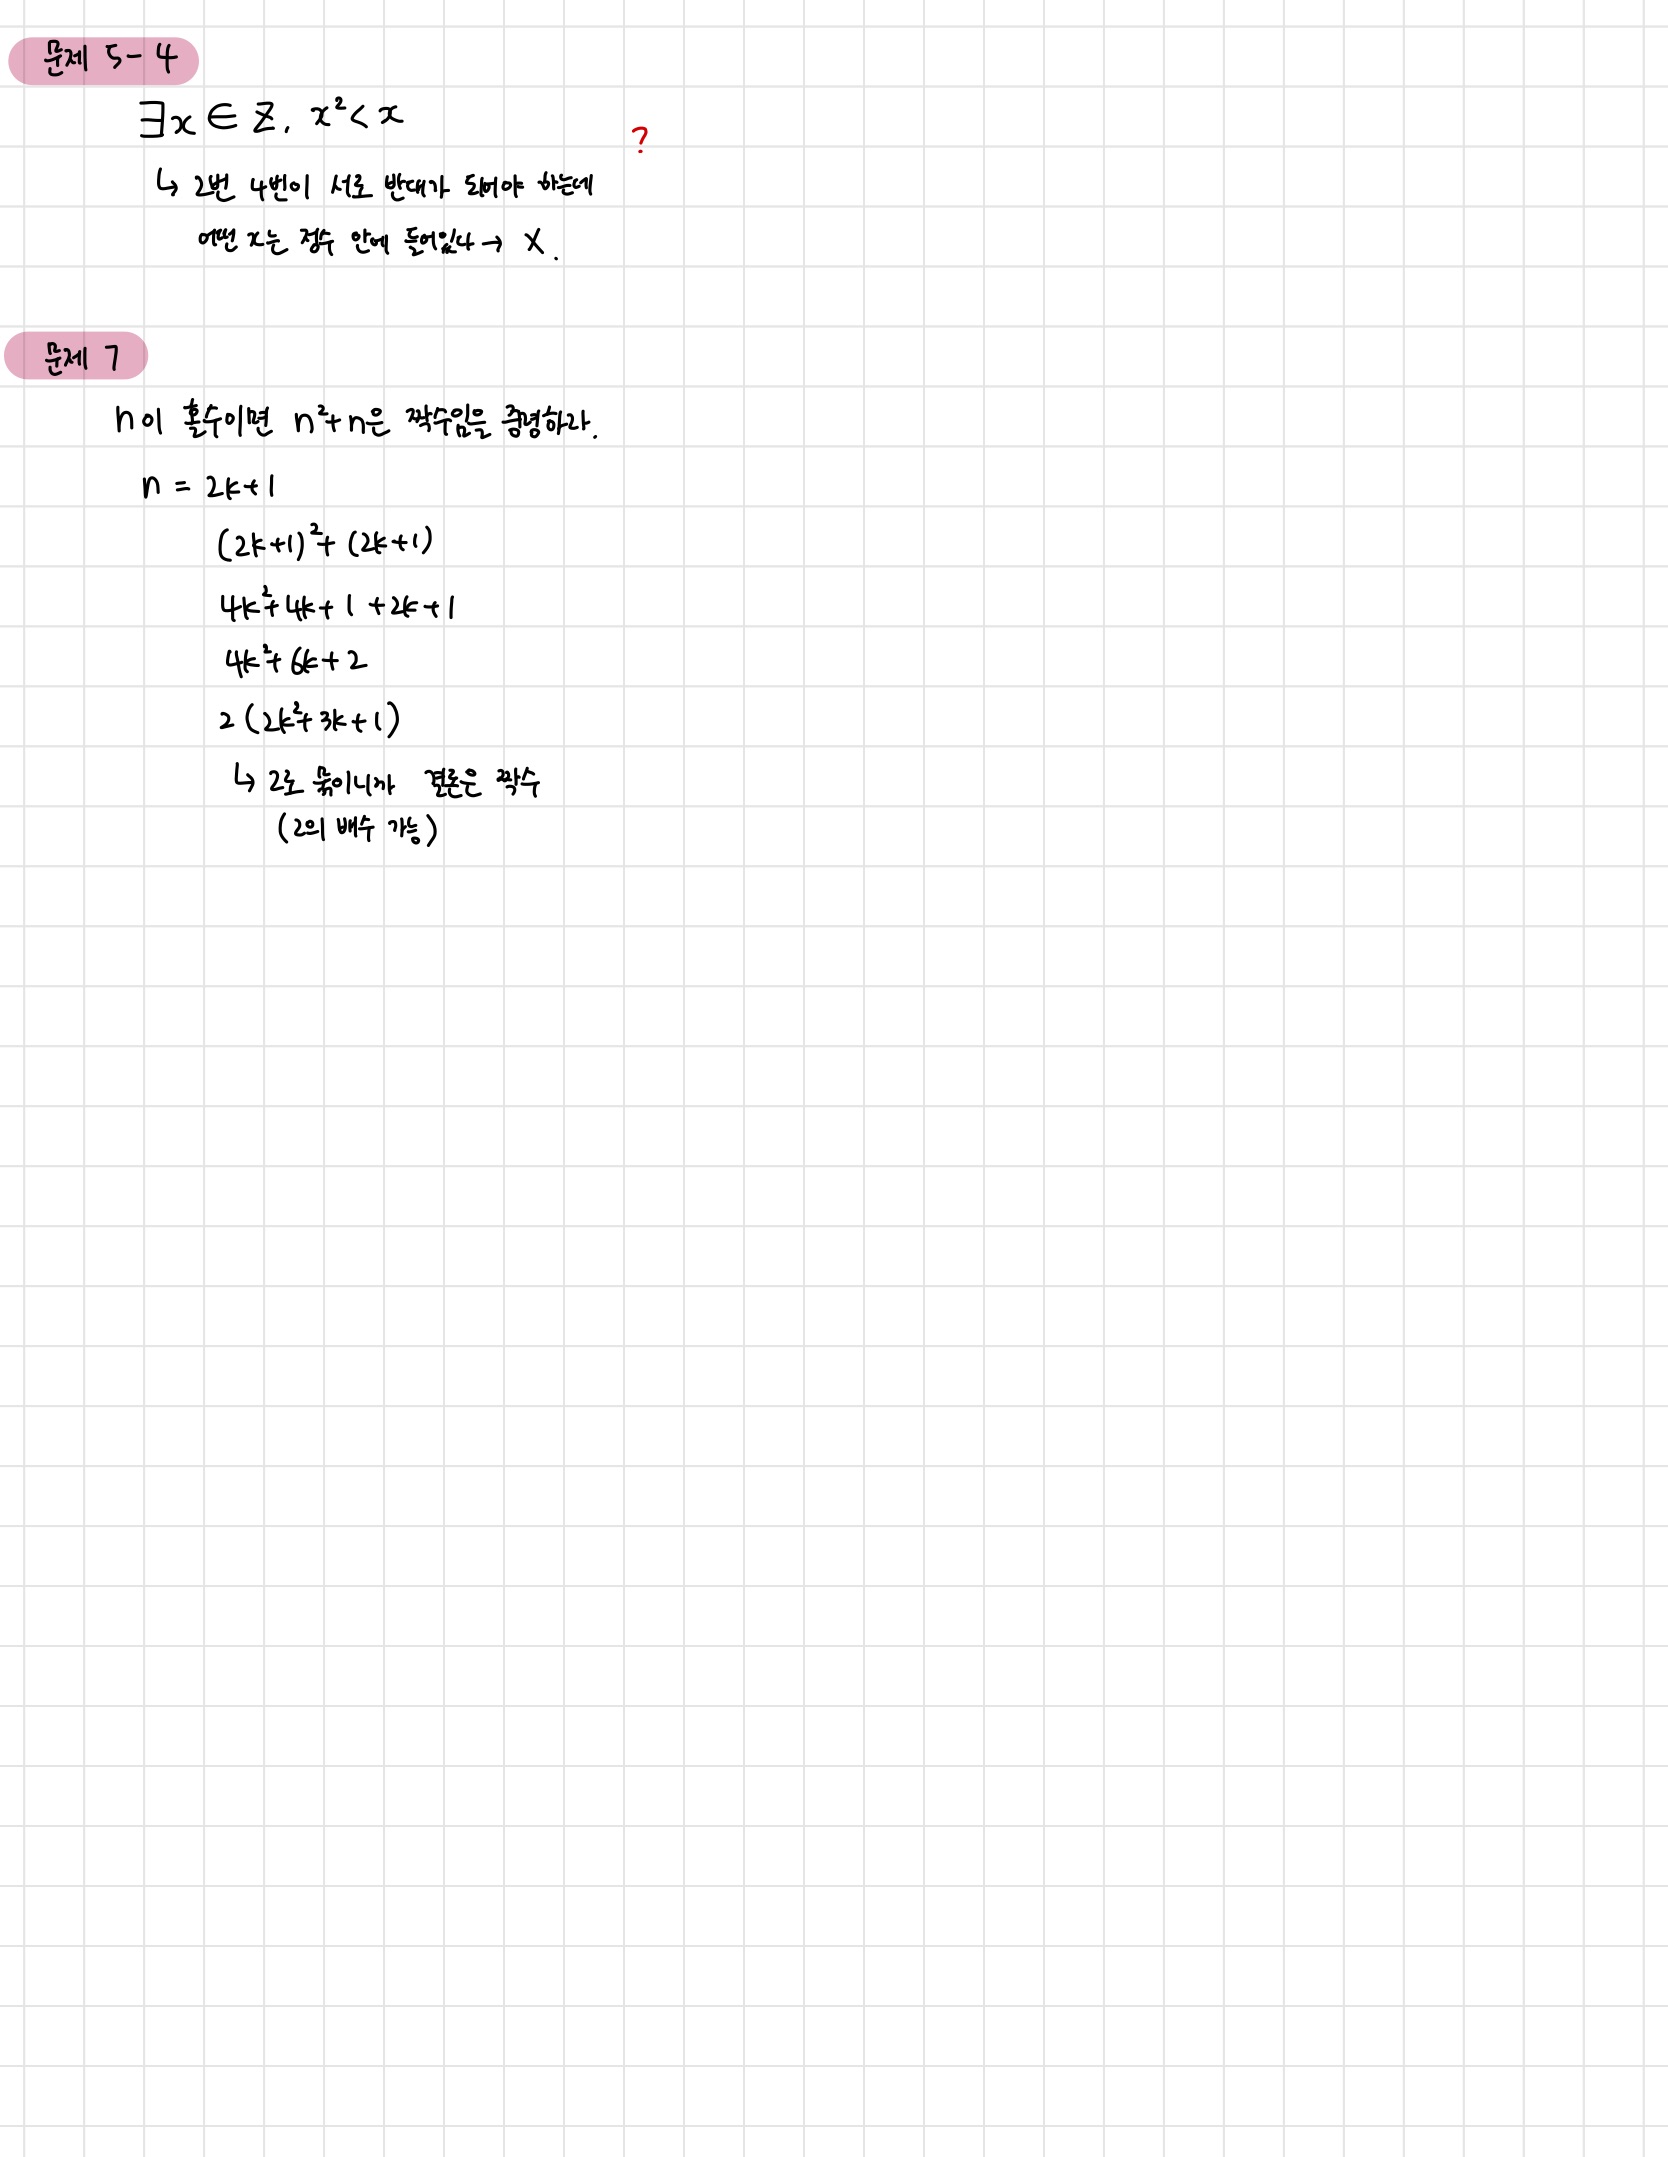 문제 5-4
∃x ∈ Z, x² < x
?
↳ 2번 4번이 서로 반대가 되어야 하는데
어떤 x는 정수 안에 들어있다 → X.
문제 7
n이 홀수이면 n²+n은 짝수임을 증명하라.
n = 2k+1
(2k+1)²+ (2k+1)
4k²+4k+1+2k+1
4k²+6k+2
2(2k²+3k+1)
↳ 2로 묶이니까 결론은 짝수
(2의 배수 가능)